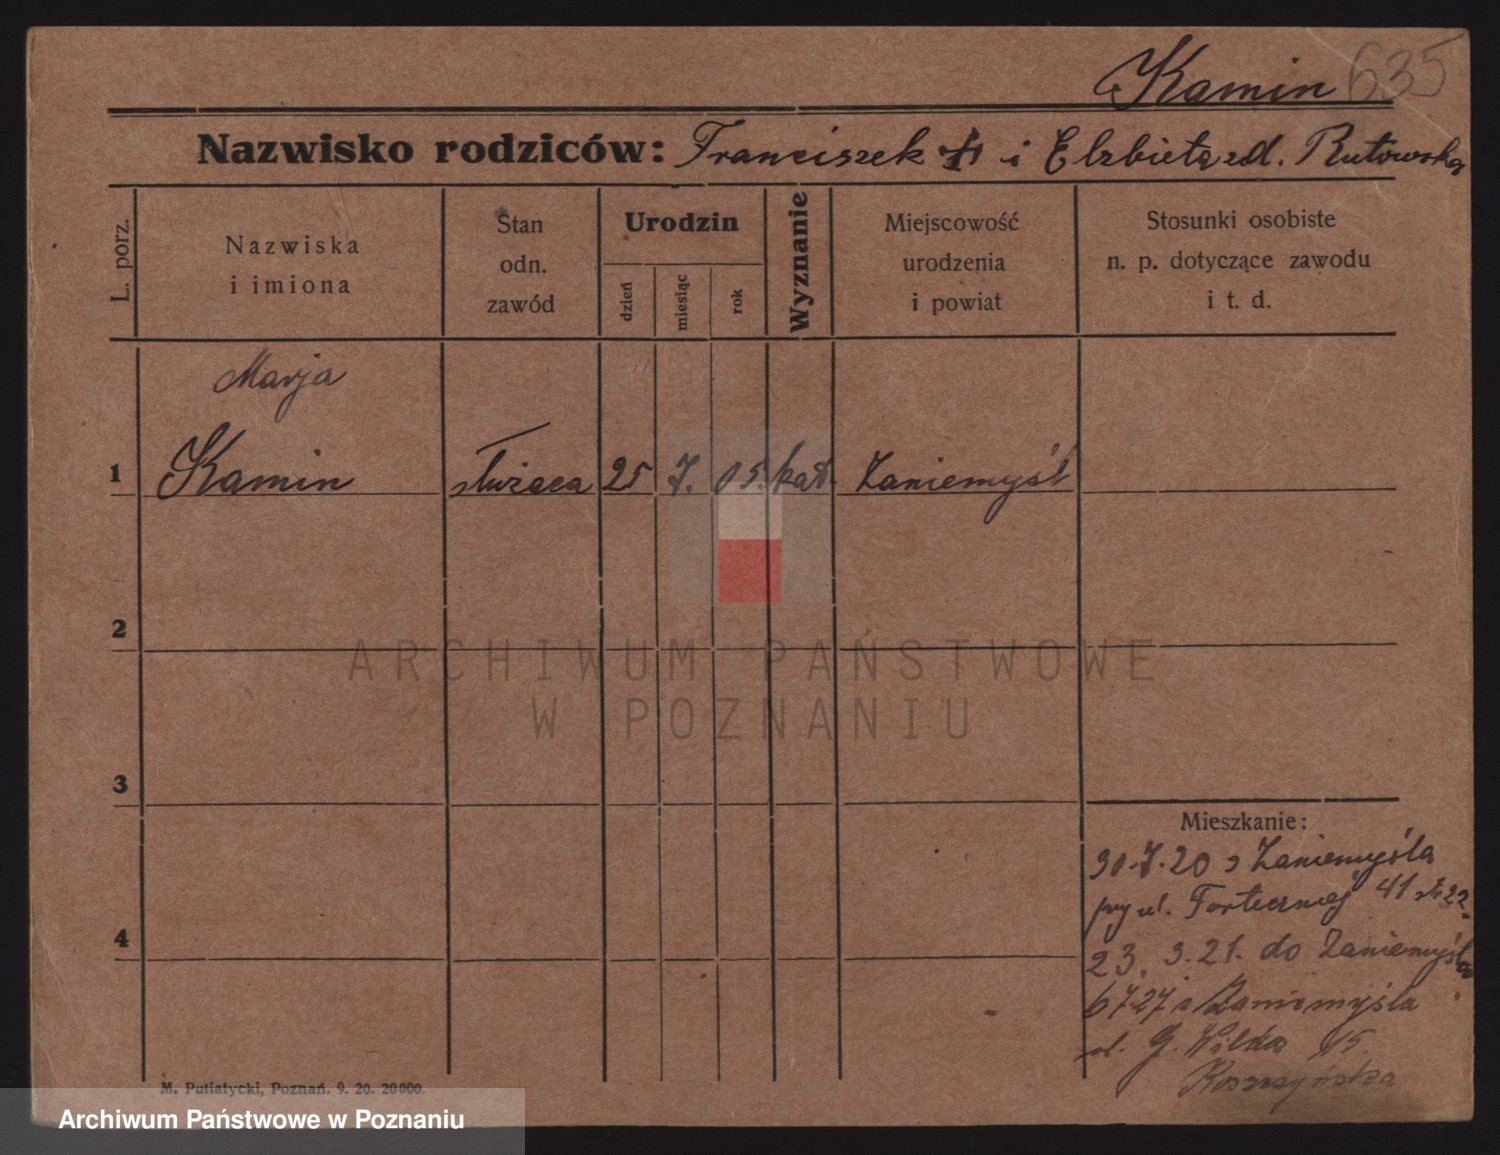 Kamin 635
Nazwisko rodziców: Franciszek i Elżbieta zd. Rutowska
L. porz.
Nazwiska
i imiona
Stan
odn.
zawód
Urodzin
dzień
miesiąc
rok
Wyznanie
Miejscowość
urodzenia
i powiat
Stosunki osobiste
n. p. dotyczące zawodu
i t. d.
Marja
1 Kamin służąca 25 7. 05. kat. Zaniemyśl
2
3
4
ARCHIWUM PAŃSTWOWE
W POZNANIU
Mieszkanie:
30.7.20 z Zaniemyśla
przy ul. Fortecznej 41
23. 3.21. do Zaniemyśla
6 7 27 z Zaniemyśla
ul. G. Wilda 15.
M. Putiatycki, Poznań. 9. 20. 20000.
Archiwum Państwowe w Poznaniu